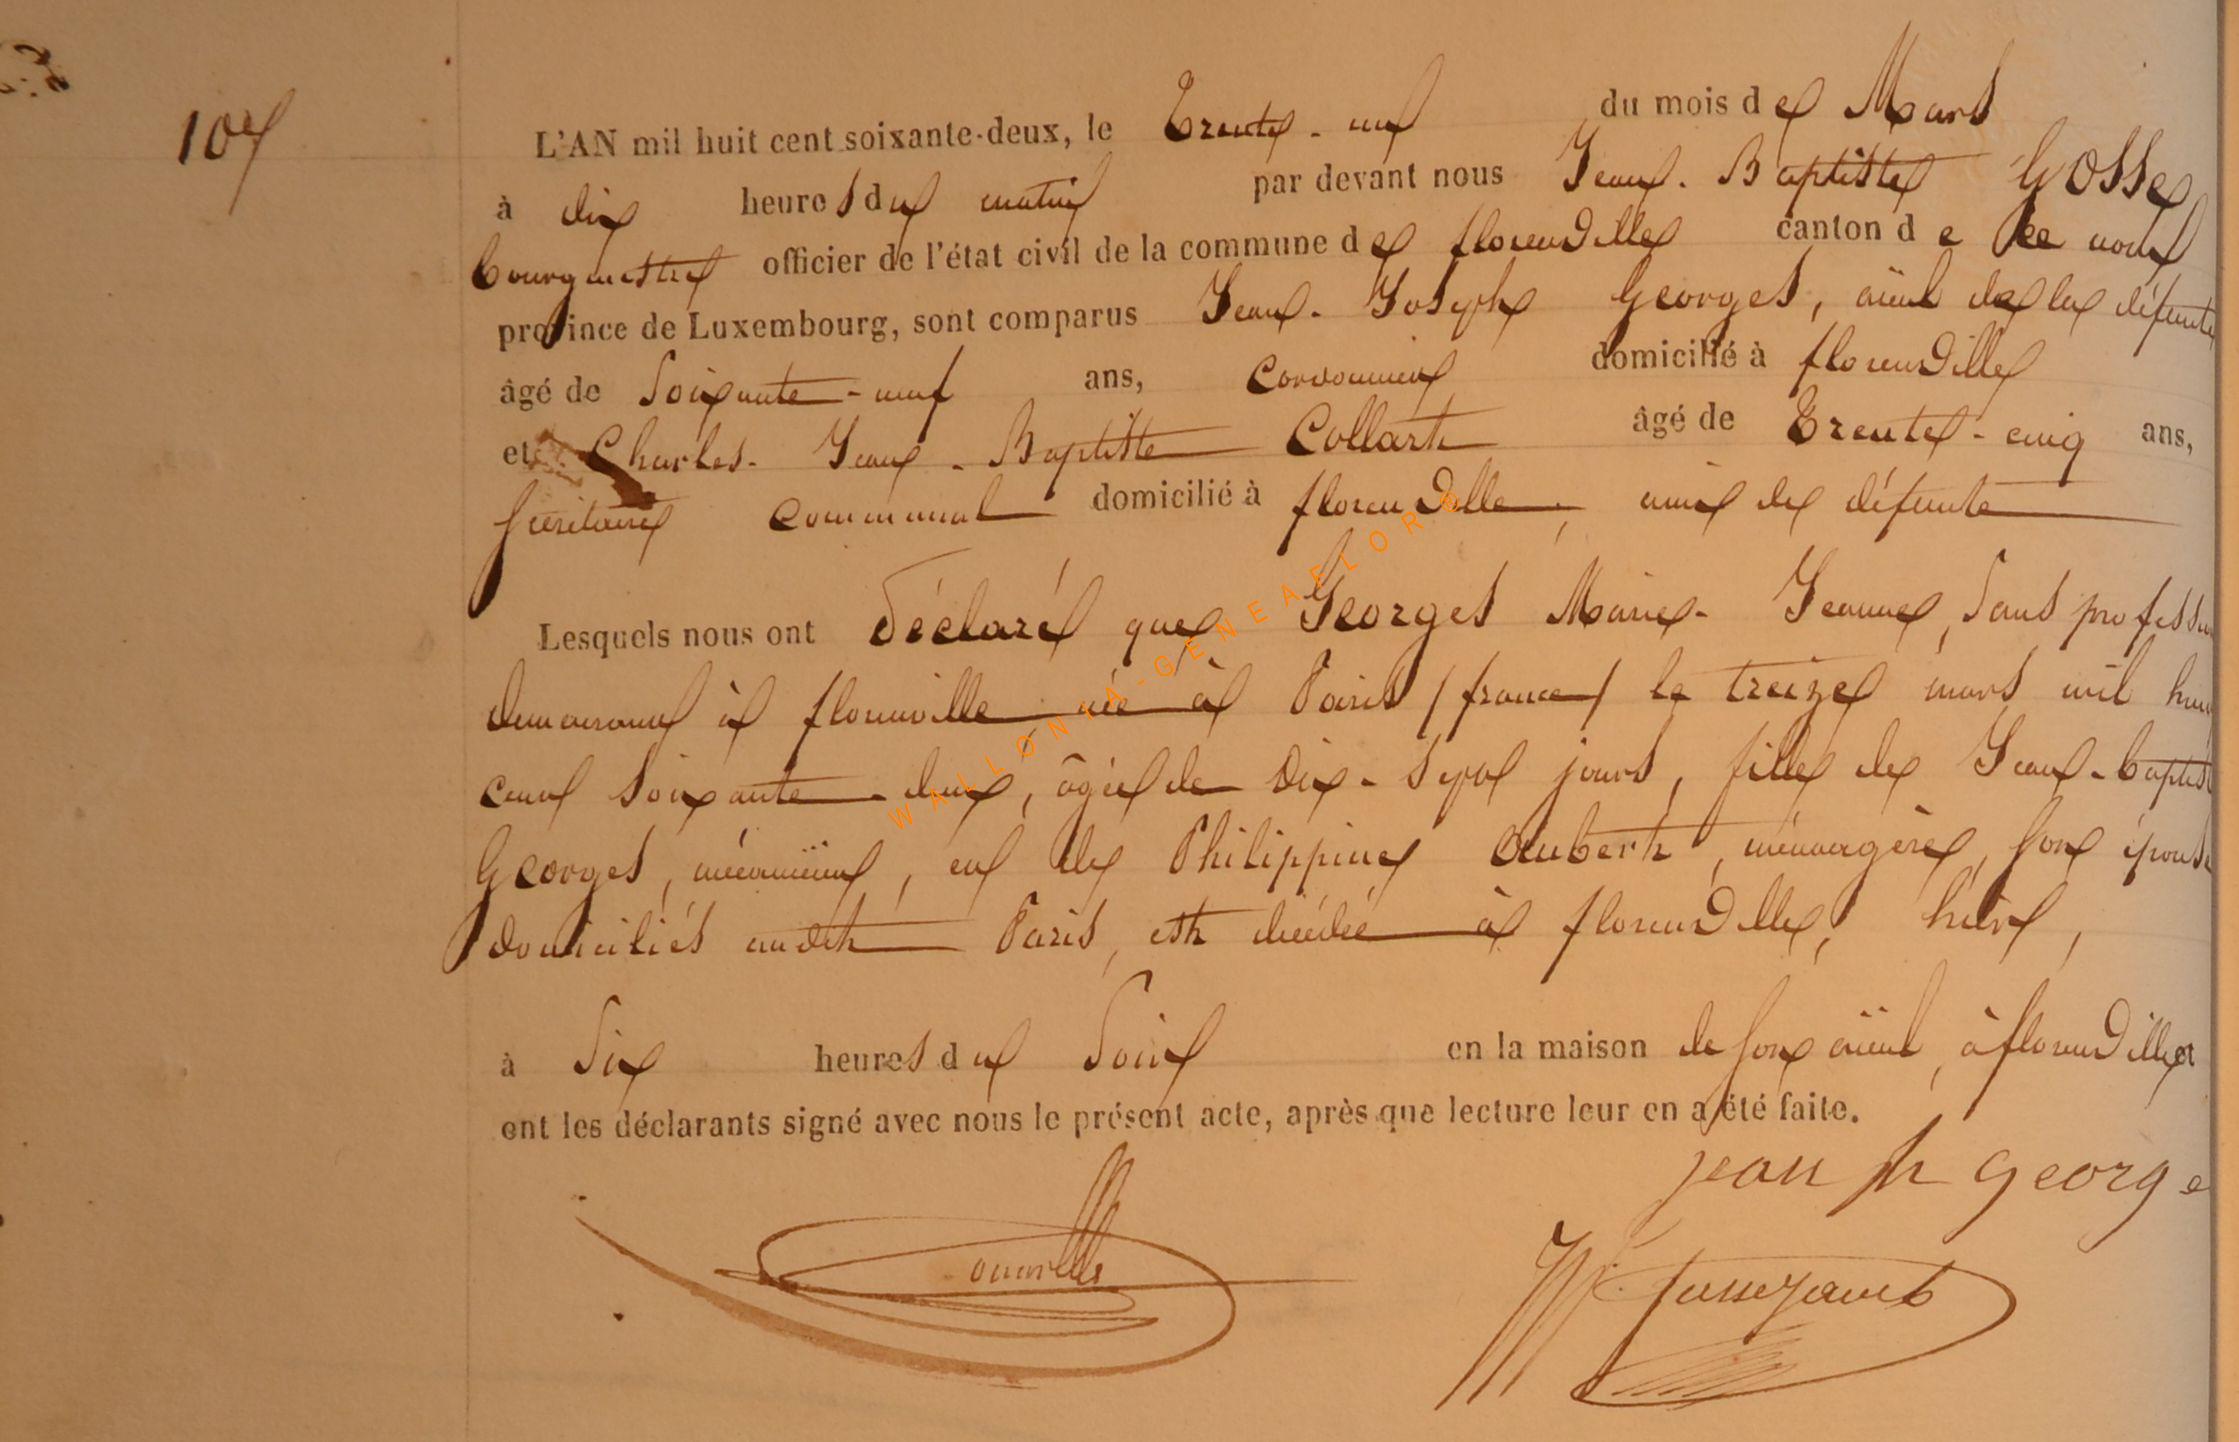 107
L'AN mil huit cent soixante-deux, le Trente-un du mois de Mars
à dix heures du matin par devant nous Jean-Baptiste Gosse
bourgmestre officier de l'état civil de la commune de florenville canton de
province de Luxembourg, sont comparus Jean-Joseph Georges, aïeul de la défunte
âgé de Soixante-neuf ans, cordonnier domicilié à florenville
et Charles-Jean-Baptiste Collart âgé de Trente-cinq ans,
Secrétaire communal domicilié à florenville, ami de défunte
Lesquels nous ont déclaré que Georges Marie-Jeanne, Sans profession
demeurant à florenville née à Paris /france/ le treize mars mil huit
cent Soixante-deux, âgée de Dix-Sept jours, fille de Jean-baptiste
Georges, mécanicien, et de Philippine Aubert, ménagère, Son épouse
domiciliés audit Paris, est décédée à florenville, hier,
à Six heures du Soir en la maison de Son aïeul, à florenville et
ont les déclarants signé avec nous le présent acte, après que lecture leur en a été faite.
jean George
WALLONIA-GENEAFLORE